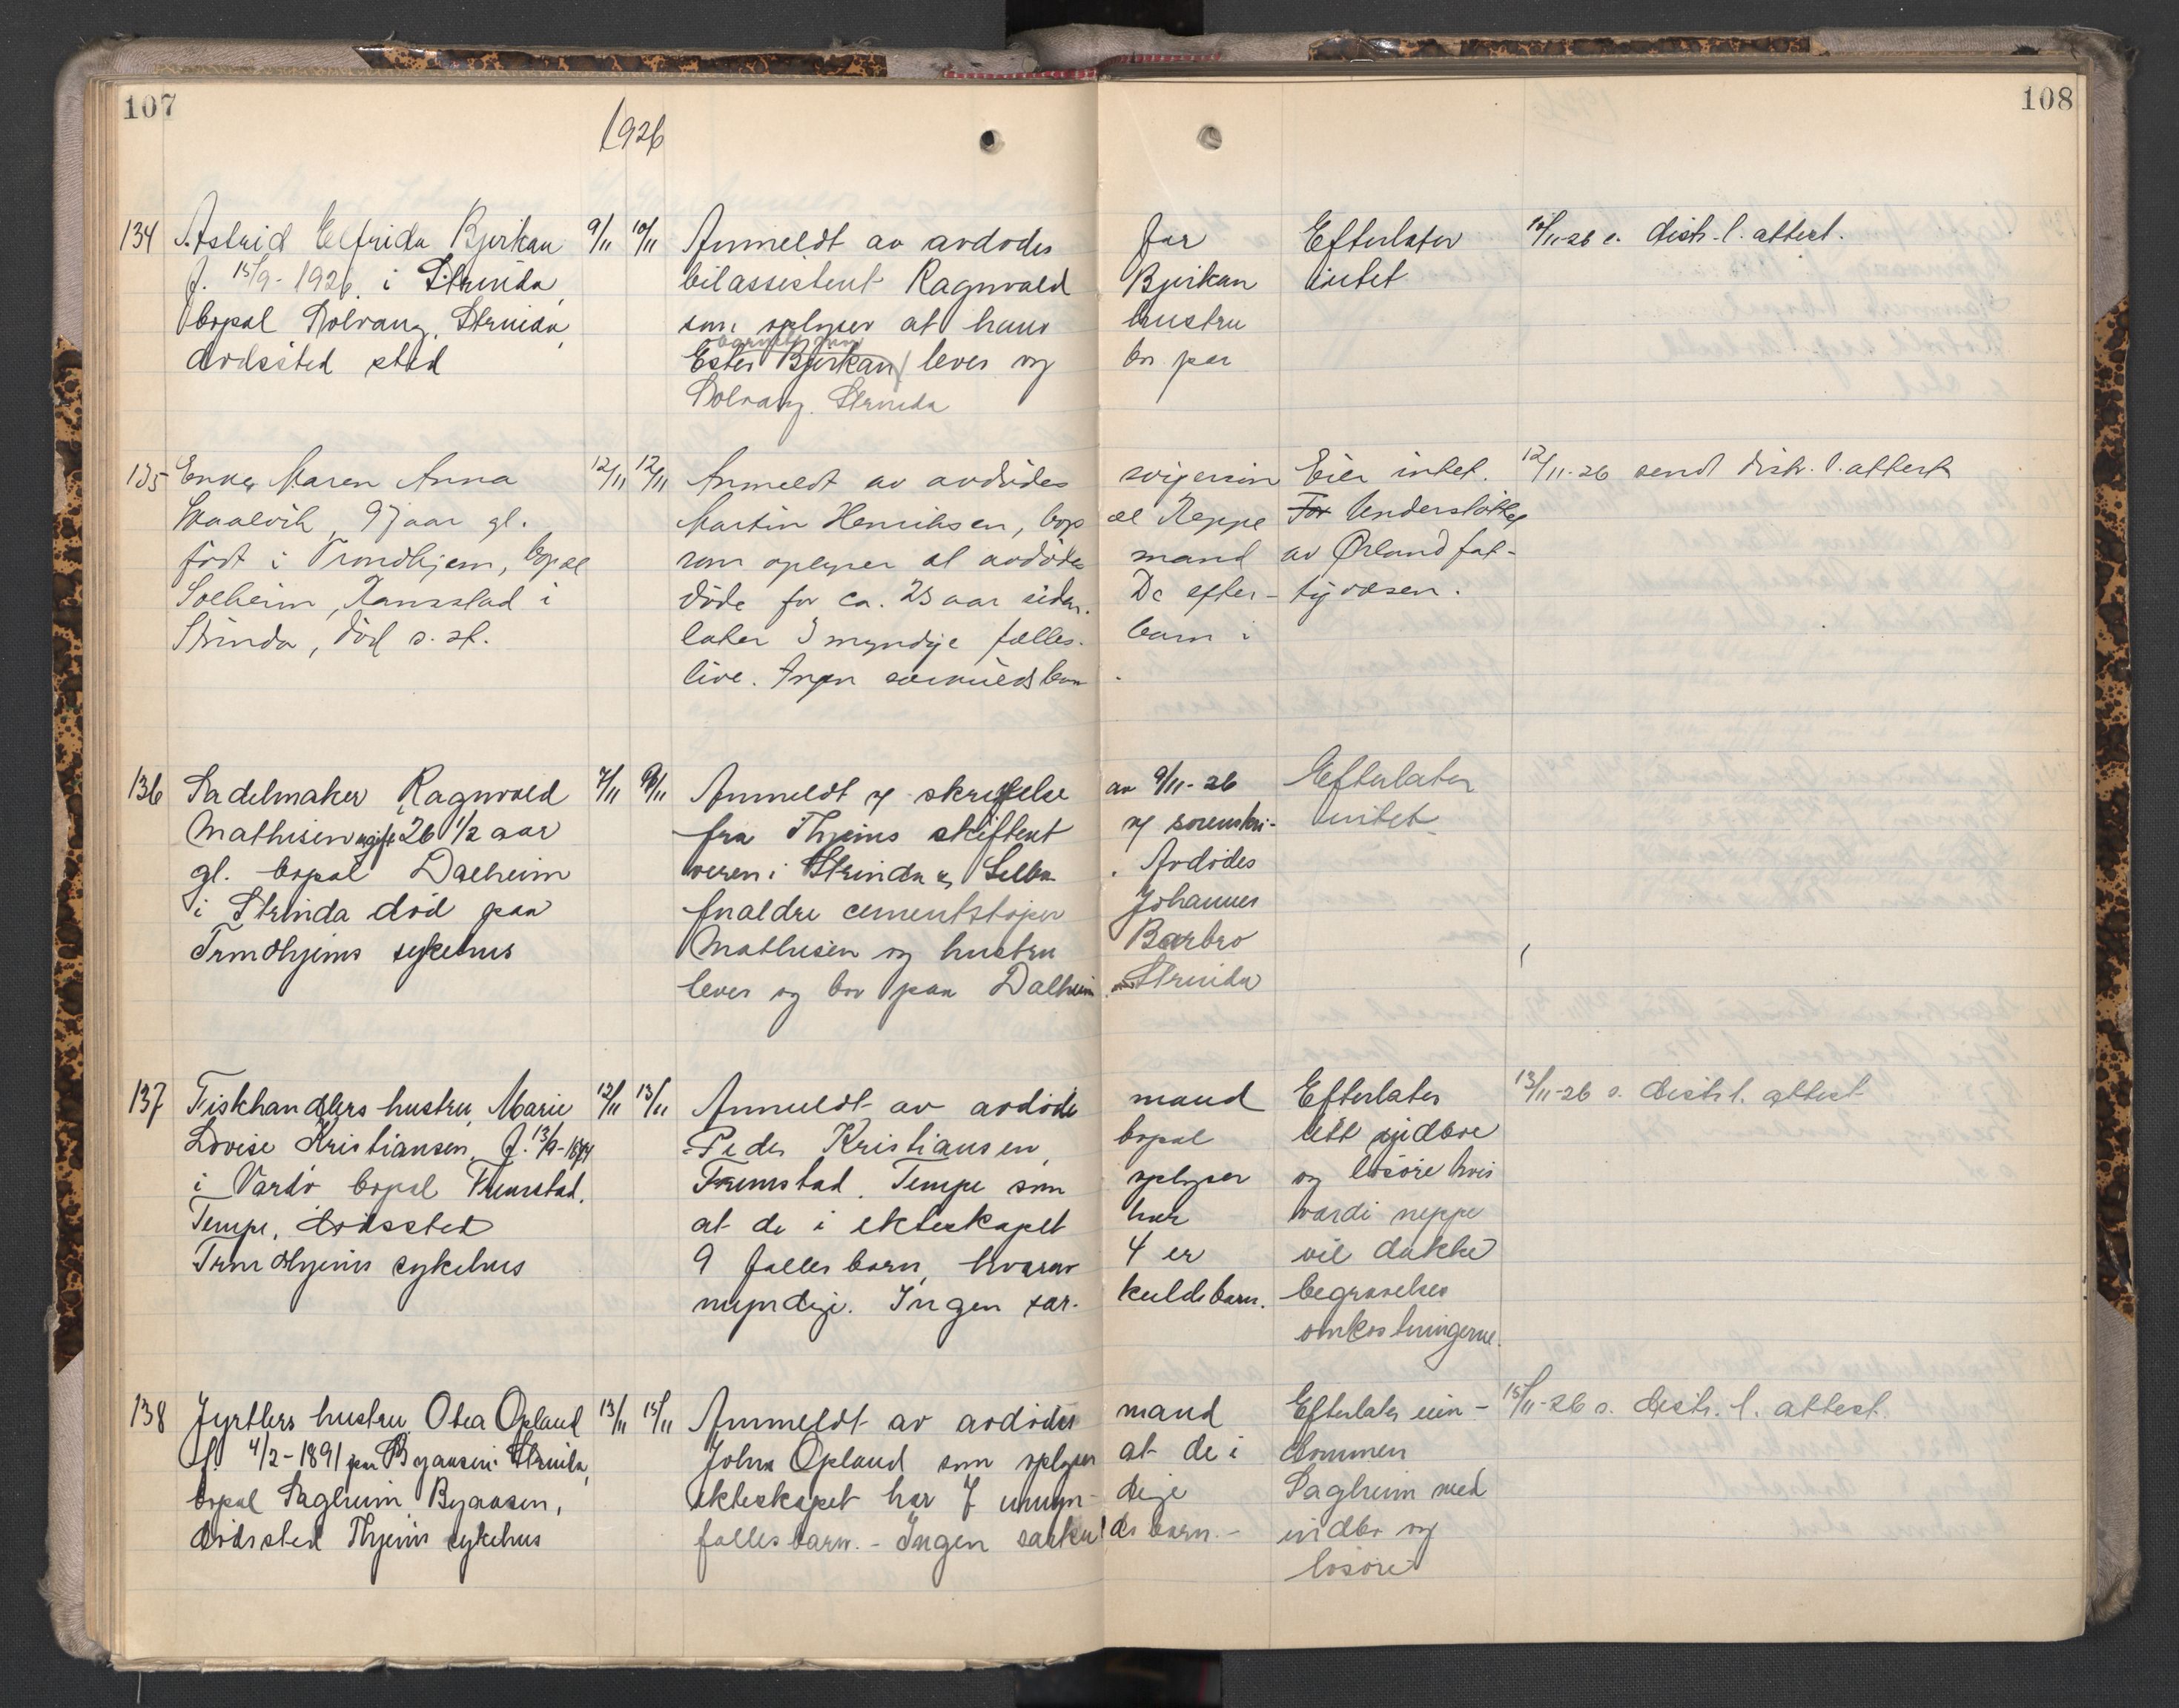 107
108
1926
134 Astrid Elfrida Bjerkan 9/11 10/11 Anmeldt av avdødes far Efterlater 10/11-26 s. distr. l. attest.
f. 15/9-1926 i Strinda, bilassistent Ragnvald Bjerkan intet
bopæl Solvang, Strinda, som oplyser at hans hustru
dødssted sted Ester Bjerkan lever og bor paa
Solvang Strinda
135 Enke Maren Anna 12/11 12/11 Anmeldt av avdødes svigersøn Eier intet. 12/11-26 send distr. l. attest
97 aar gl. Martin Henriksen, bop æl Reppe For Understøttes
født i Trondhjem, bopæl som oplyser at avdødes mand av Ørland fat-
Solheim, Ranstad i døde for ca. 25 aar siden. De efter- tigvæsen.
Strinda, død s. st. later 3 myndige fælles- barn i
live. Ingen særkuldsbarn.
136 Sadelmaker Ragnvald 7/11 9/11 Anmeldt ved skrivelse av 9/11-26 Efterlater
Mathisen ugift 26 1/2 aar fra Thjems skifteret og sorenskri- intet
gl. bopæl Dalheim veren i Strinda og Selbu. Avdødes
i Strinda død paa forældre cementstøper Johannes
Trondhjems sykehus Mathisen og hustru Barbro
lever og bor paa Dalheim Strinda
137 Fiskhandlers hustru, Marie 12/11 13/11 Anmeldt av avdødes mand Efterlater 13/11-26 s. distr. l. attest
Lovise Kristiansen, f. 13/9-1874 Peder Kristiansen, bopæl litt indbo
i Vardø bopæl Fremstad. Fremstad. Tempe som oplyser og løsøre hvis
Tempe, dødssted at de i ekteskapet har værdi neppe
Trondhjems sykehus 9 fælles barn, hvorav 4 er vil dække
myndige. Ingen sær- kuldsbarn. begravelses
omkostningerne.
138 Gjørtlers hustru Otea Opland 13/11 15/11 Anmeldt av avdødes mand Efterlater eien- 15/11-26 s. distr. l. attest
f. 4/2-1891 paa Byaasen i Strinda, John Opland som oplyser at de i dommen
bopæl Dagheim Byaasen, ekteskapet har 7 umyn- dige Dagheim med
dødssted Thjems sykehus fælles barn. - Ingen særkul ds barn. - indbo og
løsøre